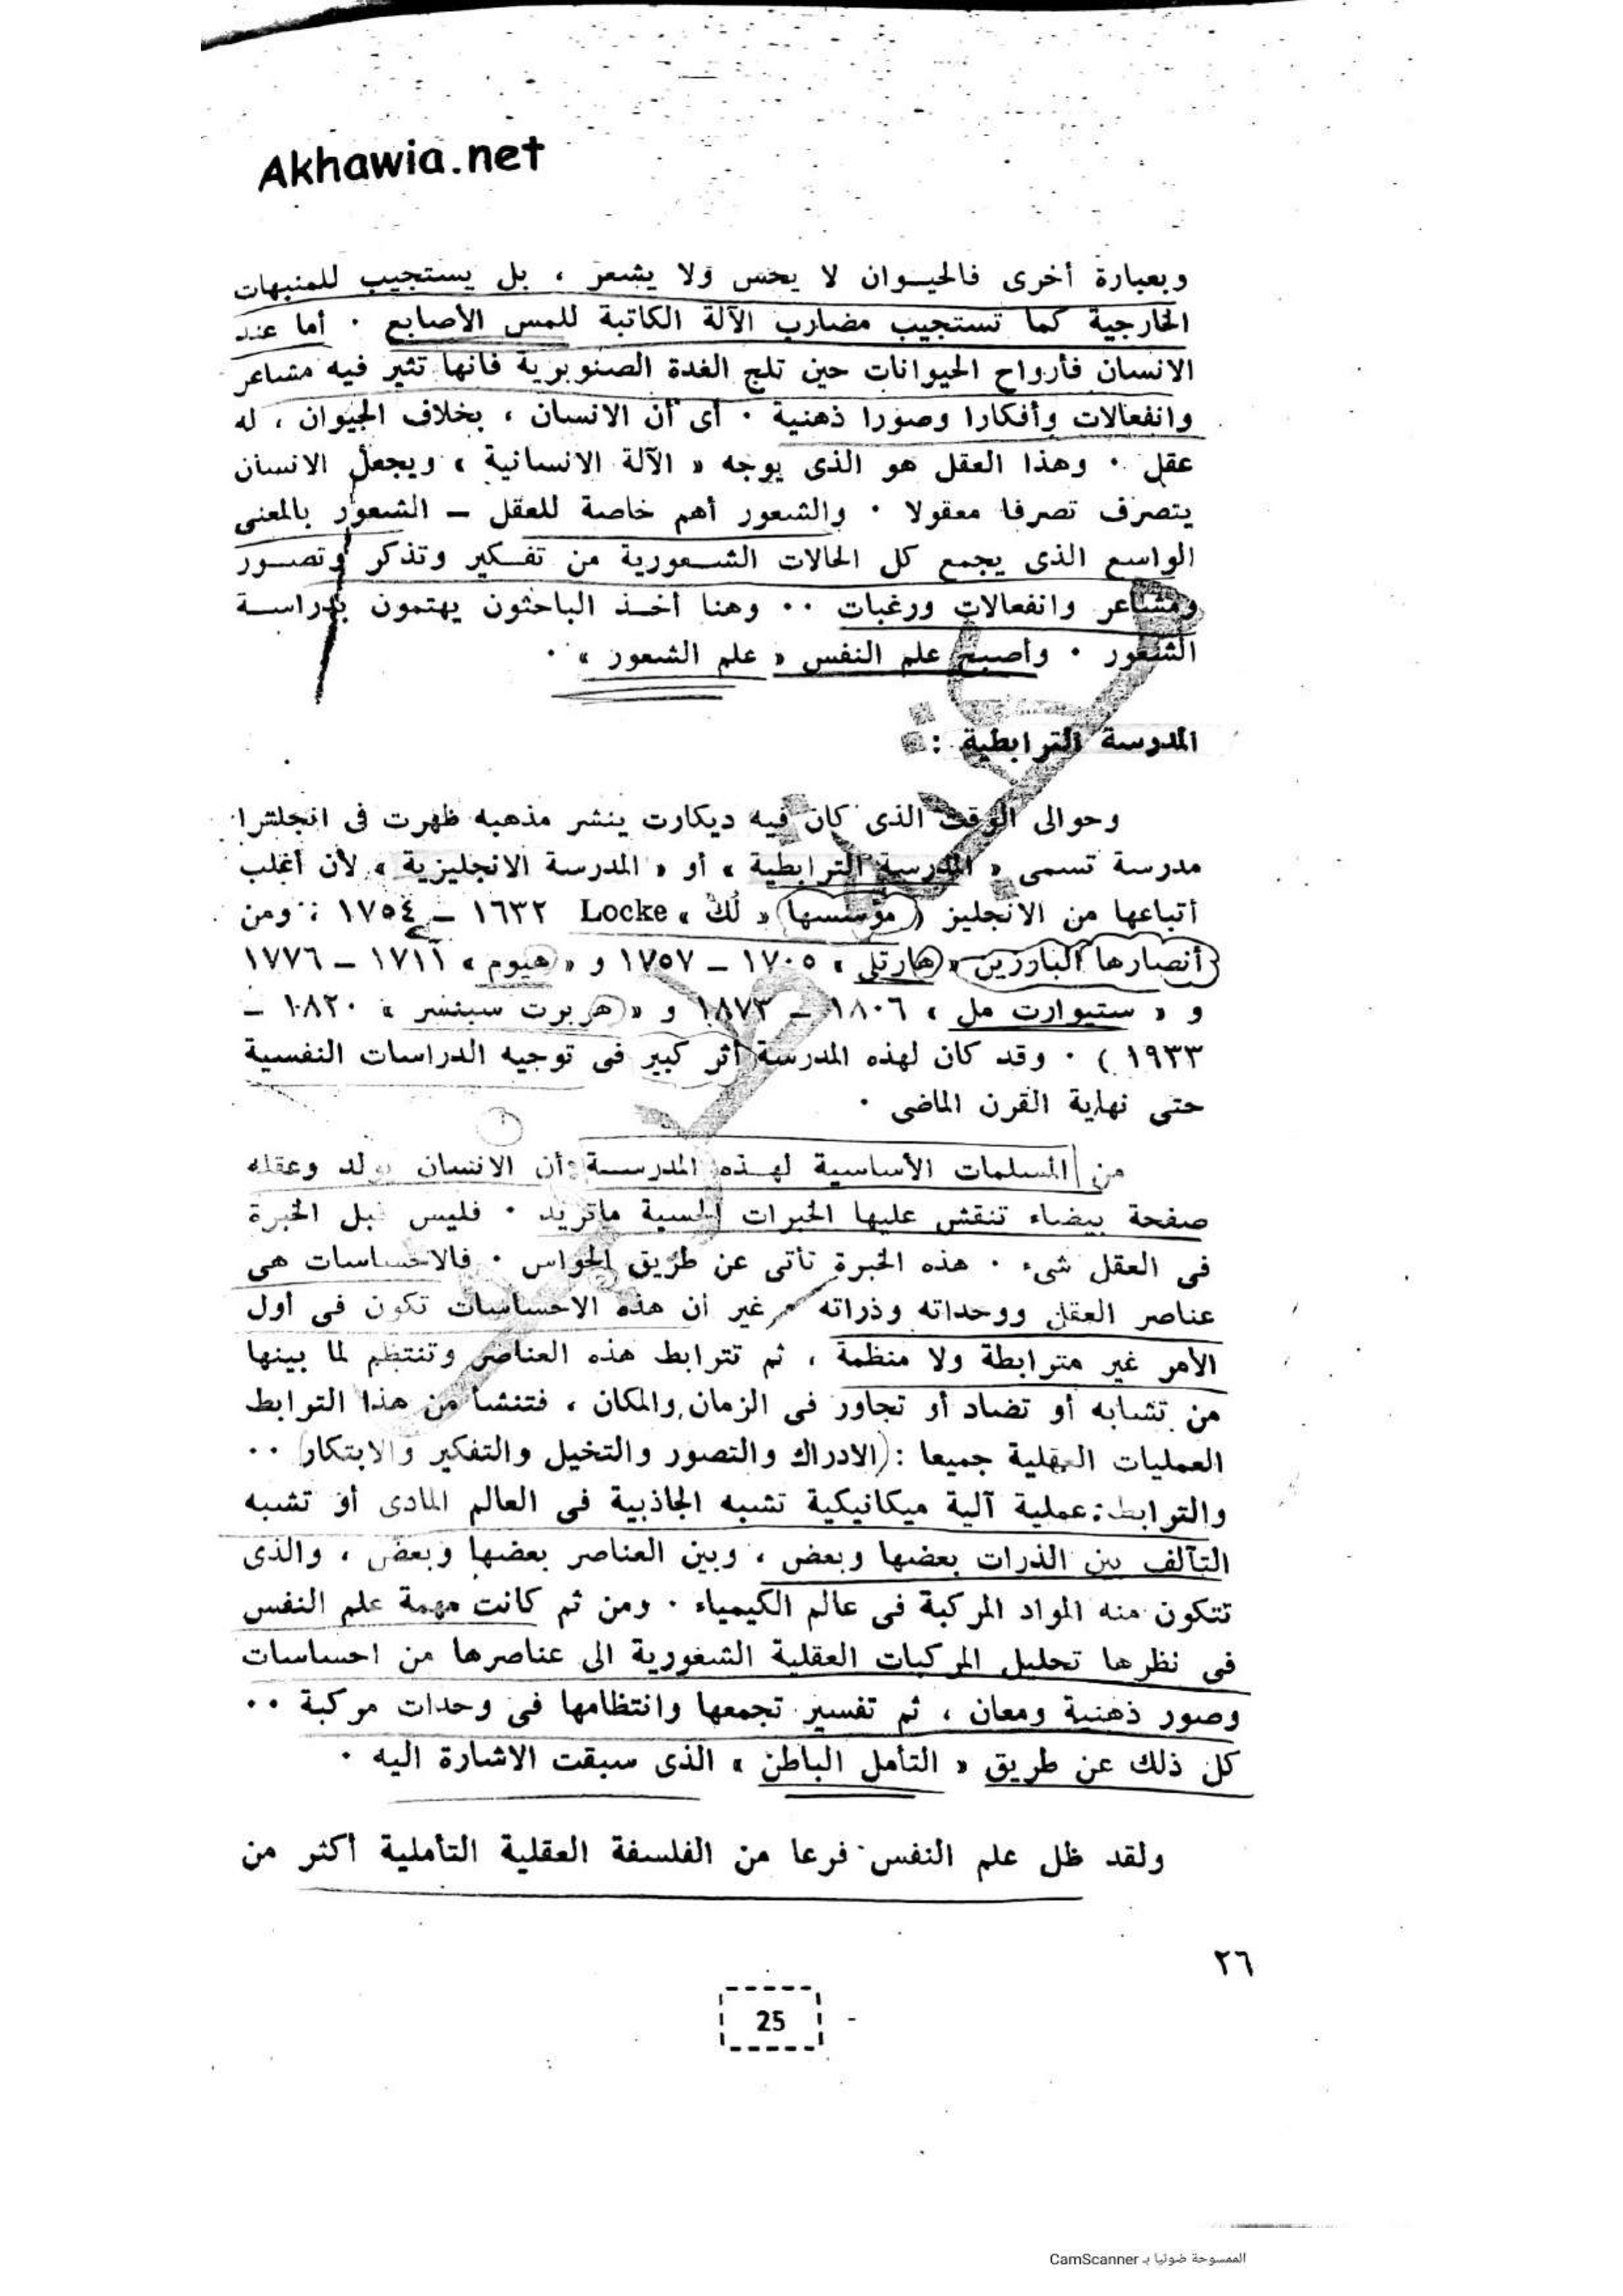 Akhawia.net
وبعبارة أخرى فالحيـوان لا يحس ولا يشعر ، بل يستجيب للمنبهات
الخارجية كما تستجيب مضارب الآلة الكاتبة للمس الأصابع . أما عند
الانسان فأرواح الحيوانات حين تلج الغدة الصنوبرية فانها تثير فيه مشاعر
وانفعالات وأفكارا وصورا ذهنية . أى أن الانسان ، بخلاف الحيوان ، له
عقل . وهذا العقل هو الذى يوجه « الآلة الانسانية » ويجعل الانسان
يتصرف تصرفا معقولا . والشعور أهم خاصة للعقل – الشعور بالمعنى
الواسع الذى يجمع كل الحالات الشـعورية من تفـكير وتذكر وتصـور
ومشاعر وانفعالات ورغبات .. وهنا أخـذ الباحثون يهتمون بدراسـة
الشعور . وأصبح علم النفس « علم الشعور » .
المدرسة الترابطية :
وحوالى الوقت الذى كان فيه ديكارت ينشر مذهبه ظهرت فى انجلترا
مدرسة تسمى « المدرسة الترابطية » أو « المدرسة الانجليزية » لأن أغلب
أتباعها من الانجليز ( مؤسسها « لُك » Locke ١٦٣٢ – ١٧٥٤ : ومن
أنصارها البارزين « هارتلى » ١٧٠٥ – ١٧٥٧ و « هيوم » ١٧١١ – ١٧٧٦
و « ستيوارت مل » ١٨٠٦ – ١٨٧٣ و « هربرت سبنسر » ١٨٢٠ –
١٩٣٣ ) . وقد كان لهذه المدرسة أثر كبير فى توجيه الدراسات النفسية
حتى نهاية القرن الماضى .
من المسلمات الأساسية لهـذه المدرسـة أن الانسان يولد وعقله
صفحة بيضاء تنقش عليها الخبرات الحسية ماتريد . فليس قبل الخبرة
فى العقل شىء . هذه الخبرة تأتى عن طريق الحواس . فالاحساسات هى
عناصر العقل ووحداته وذراته . غير أن هذه الاحساسات تكون فى أول
الأمر غير مترابطة ولا منظمة ، ثم تترابط هذه العناصر وتنتظم لما بينها
من تشابه أو تضاد أو تجاور فى الزمان والمكان ، فتنشأ من هذا الترابط
العمليات العقلية جميعا : (الادراك والتصور والتخيل والتفكير والابتكار) ..
والترابط : عملية آلية ميكانيكية تشبه الجاذبية فى العالم المادى أو تشبه
التآلف بين الذرات بعضها وبعض ، وبين العناصر بعضها وبعض ، والذى
تتكون منه المواد المركبة فى عالم الكيمياء . ومن ثم كانت مهمة علم النفس
فى نظرها تحليل المركبات العقلية الشعورية الى عناصرها من احساسات
وصور ذهنية ومعان ، ثم تفسير تجمعها وانتظامها فى وحدات مركبة ..
كل ذلك عن طريق « التأمل الباطن » الذى سبقت الاشارة اليه .
ولقد ظل علم النفس فرعا من الفلسفة العقلية التأملية أكثر من
٢٦
25
الممسوحة ضوئيا بـ CamScanner